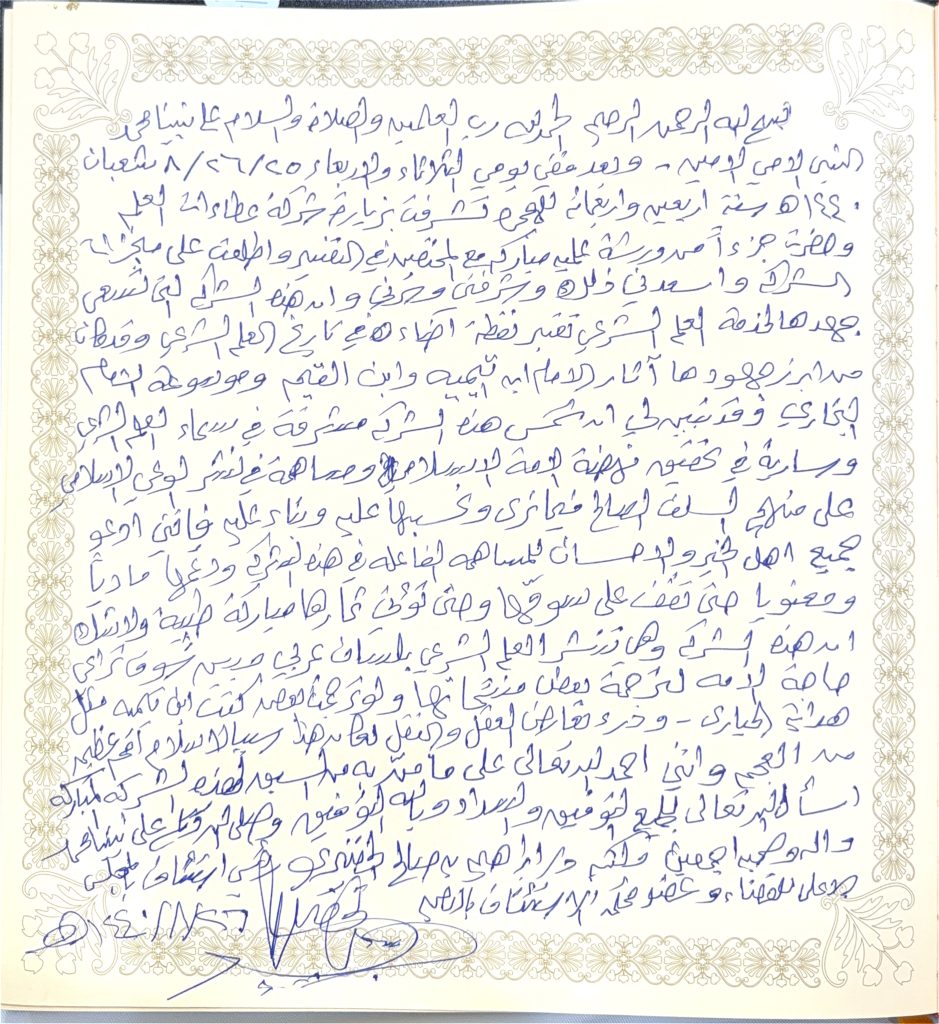 بسم الله الرحمن الرحيم الحمد لله رب العالمين والصلاة والسلام على نبينا محمد
النبي الامي الامين - وبعد ففي يومي الثلاثاء والاربعاء ٢٥/٢٦/٨ شعبان
١٤٤٠هـ سنة اربعين واربعمائة للهجرة تشرفت بزيارة شركة عطاءات العلم
وحضرت جزءاً من ورشة علمية مباركه مع المختصين في التفسير واطلعت على منجزات
الشركه واسعدني ذلك وشرفني وسرني وان هذه الشركه التي تسعى
جهدها لخدمة العلم الشرعي تعتبر نقطة اضاءه في تاريخ العلم الشرعي وقد كان
من ابرز جهودها آثار الامام ابن تيميه وابن القيم وموسوعة الامام
البخاري وقد تبين لي ان شمس هذه الشركه مشرقة في سماء العلم الشرعي
وسارية في تحقيق نهضة الامة الاسلاميه ومساهمة في نشر الوعي الاسلامي
على منهج السلف الصالح فيما نرى ونحسبها عليه وبناء عليه فانني ادعو
جميع اهل الخير والاحسان للمساهمه الفاعله في هذه الشركه ودعمها مادياً
ومعنويا حتى تقف على سوقها وحتى تؤتي ثمارها مباركة طيبة ولاشك
ان هذه الشركه وهي تنشر العلم الشرعي بلسان عربي مبين سوف تراعي
حاجة الامه لترجمة بعض منتجاتها ولو ترجمت بعض كتب ابن تيميه مثل
هداية الحيارى - ودرء تعارض العقل والنقل لكان هذا سببا لاسلام امم عظيمه
من العجم وانني احمد الله تعالى على ما منّ به من السبق لهذه الشركه المباركه
اسأل الله تعالى للجميع التوفيق والسداد وبالله التوفيق وصلى الله وسلم على نبينا محمد
واله وصحبه اجمعين وكتبه د/ ابراهيم بن صالح الخضيري قاضي استئناف بالمجلس
الاعلى للقضاء وعضو محكمة الاستئناف بالرياض
١٤٤٠/٨/٢٦هـ